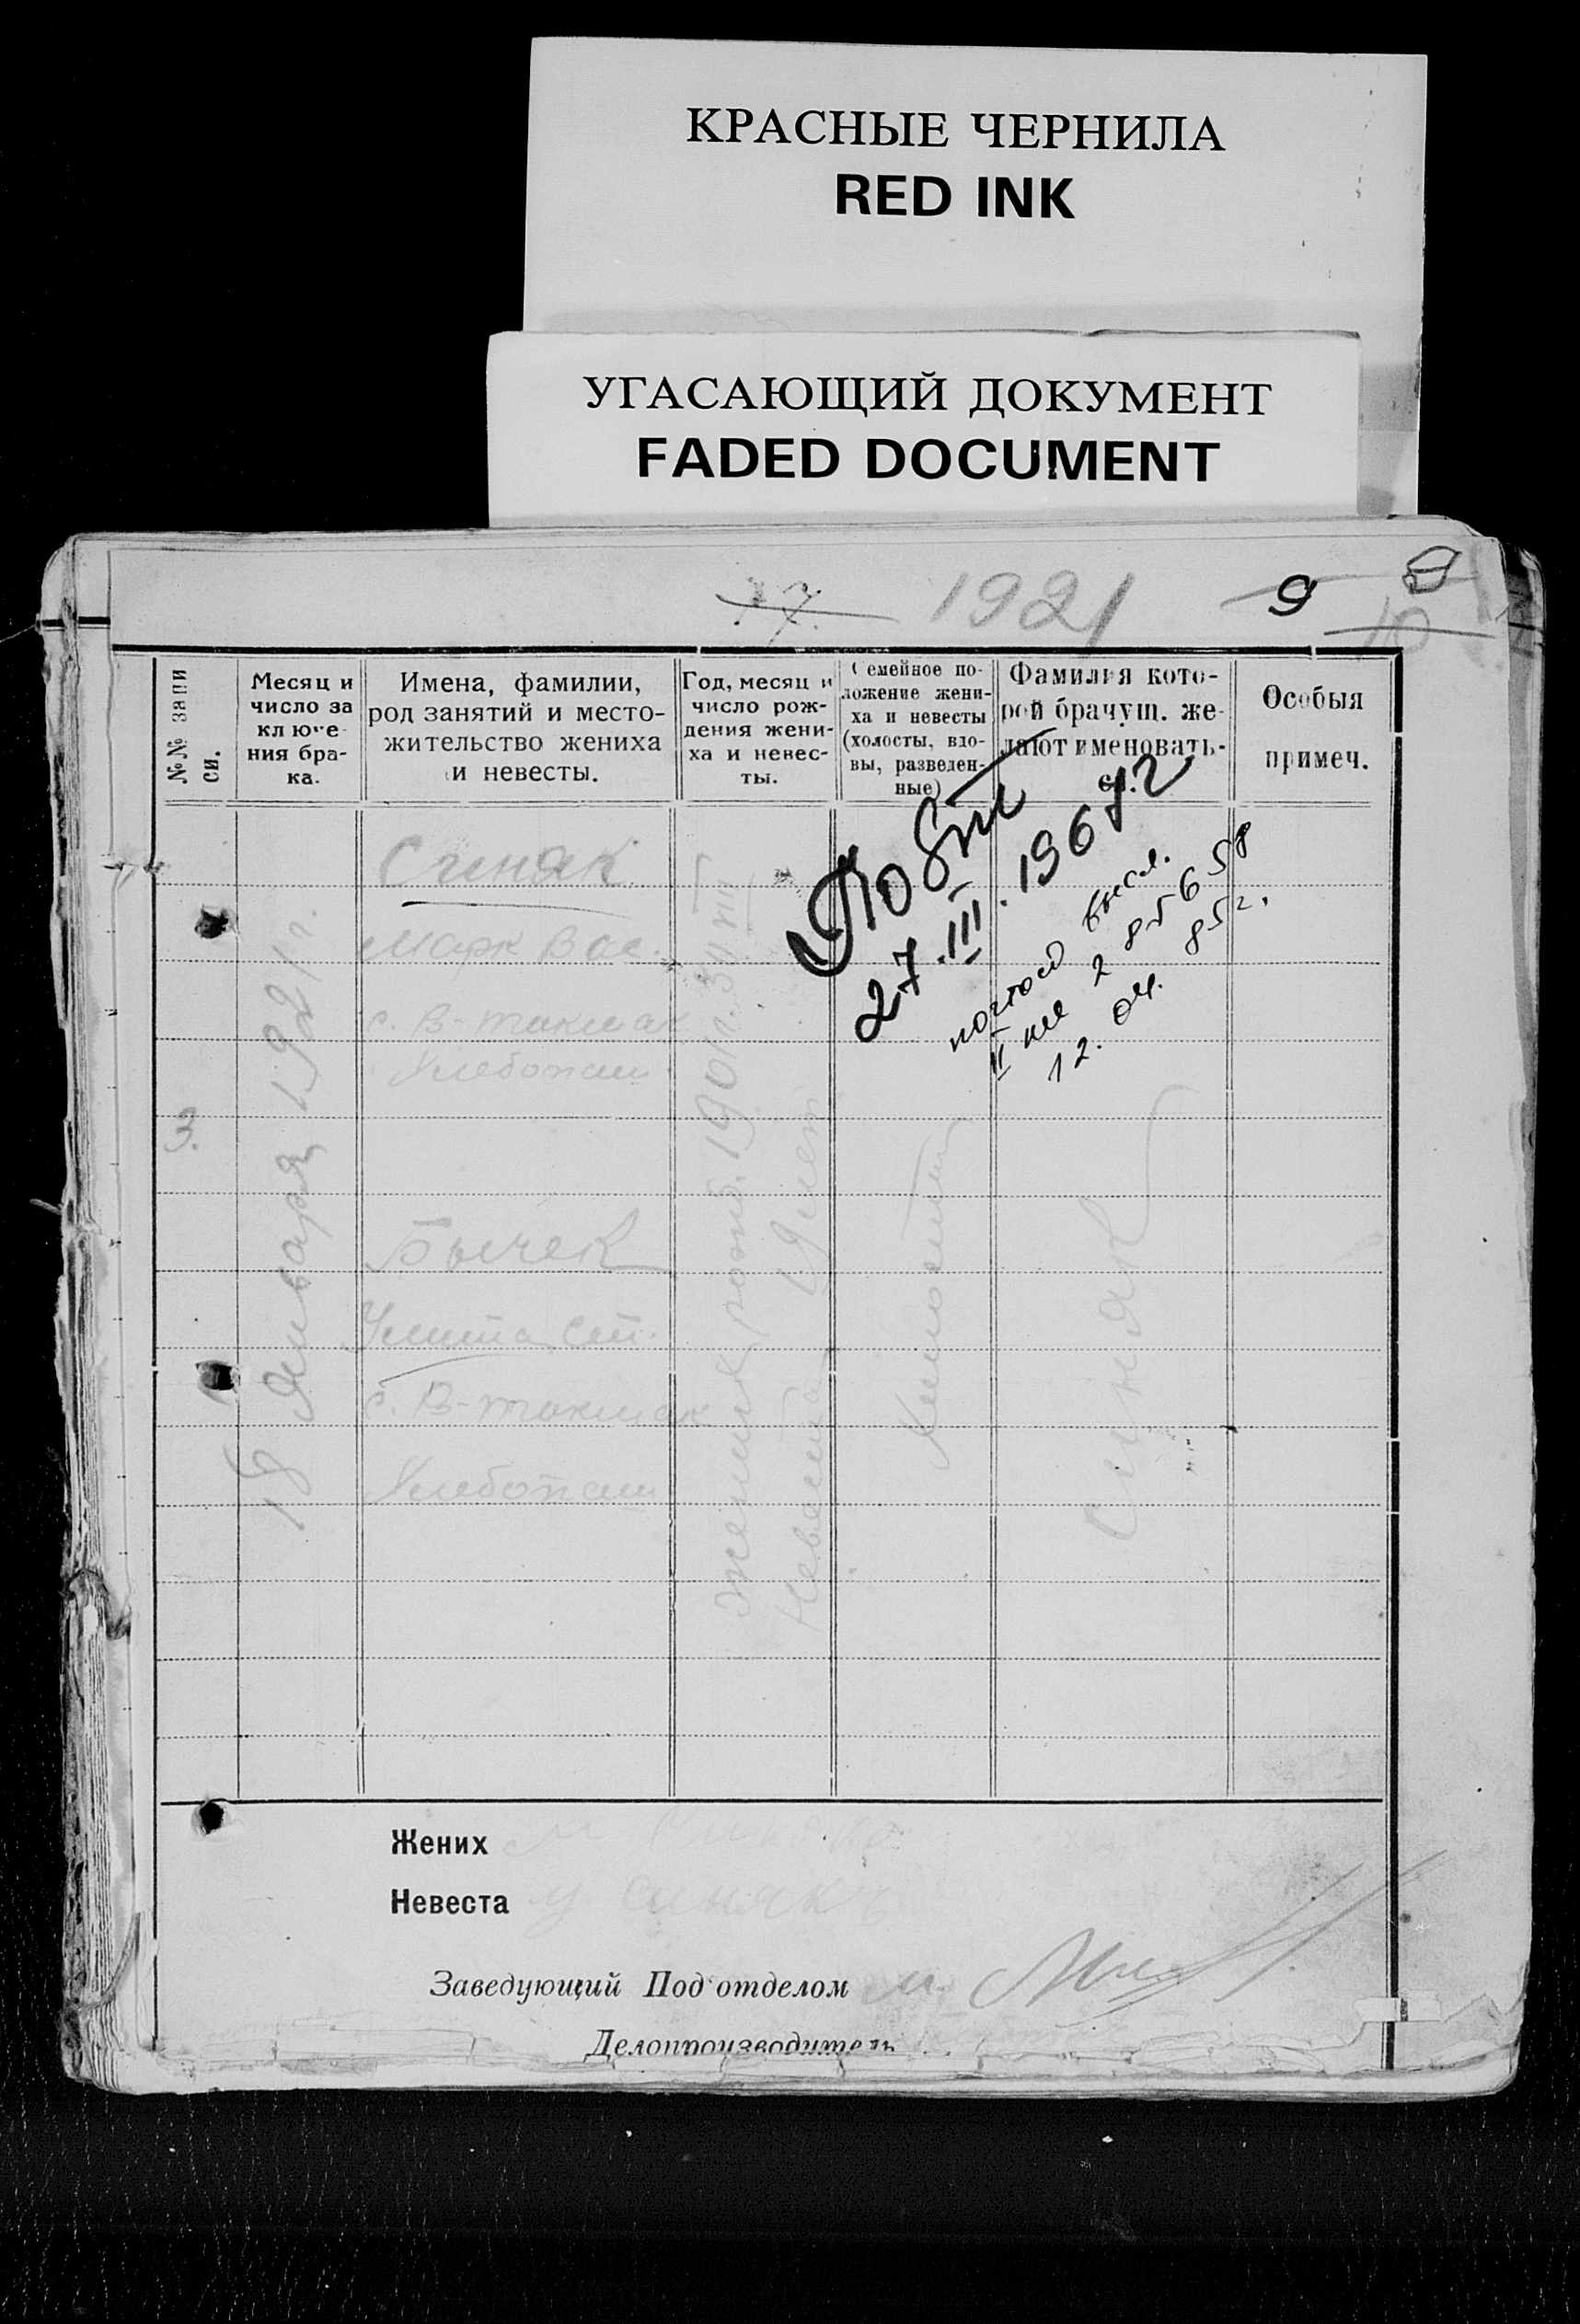 КРАСНЫЕ ЧЕРНИЛА
RED INK
УГАСАЮЩИЙ ДОКУМЕНТ
FADED DOCUMENT
17. 1921 9 9
10
№№ запи
си.
Месяц и
число за
ключе
ния бра-
ка.
Имена, фамилии,
род занятий и место-
жительство жениха
и невесты.
Год, месяц и
число рож-
дения жени-
ха и невес-
ты.
Семейное по-
ложение жени-
ха и невесты
(холосты, вдо-
вы, разведен-
ные)
Фамилия кото-
рой брачущ. же-
лают именовать-
ся.
Особыя
примеч.
3.
18 Января 1921 г.
Синяк
Марк Вас.
с. В-токмак
Хлебопаш.
Бычек
Улита Ст.
с. В-токмак
Хлебопаш
Жених 1901 г.
Невеста 19 лет
Синяк
27.III.1967 г
II 2 85658
12. 04. 85 г.
Жених
Невеста у синяк
Заведующий Под'отделом
Делопроизводитель